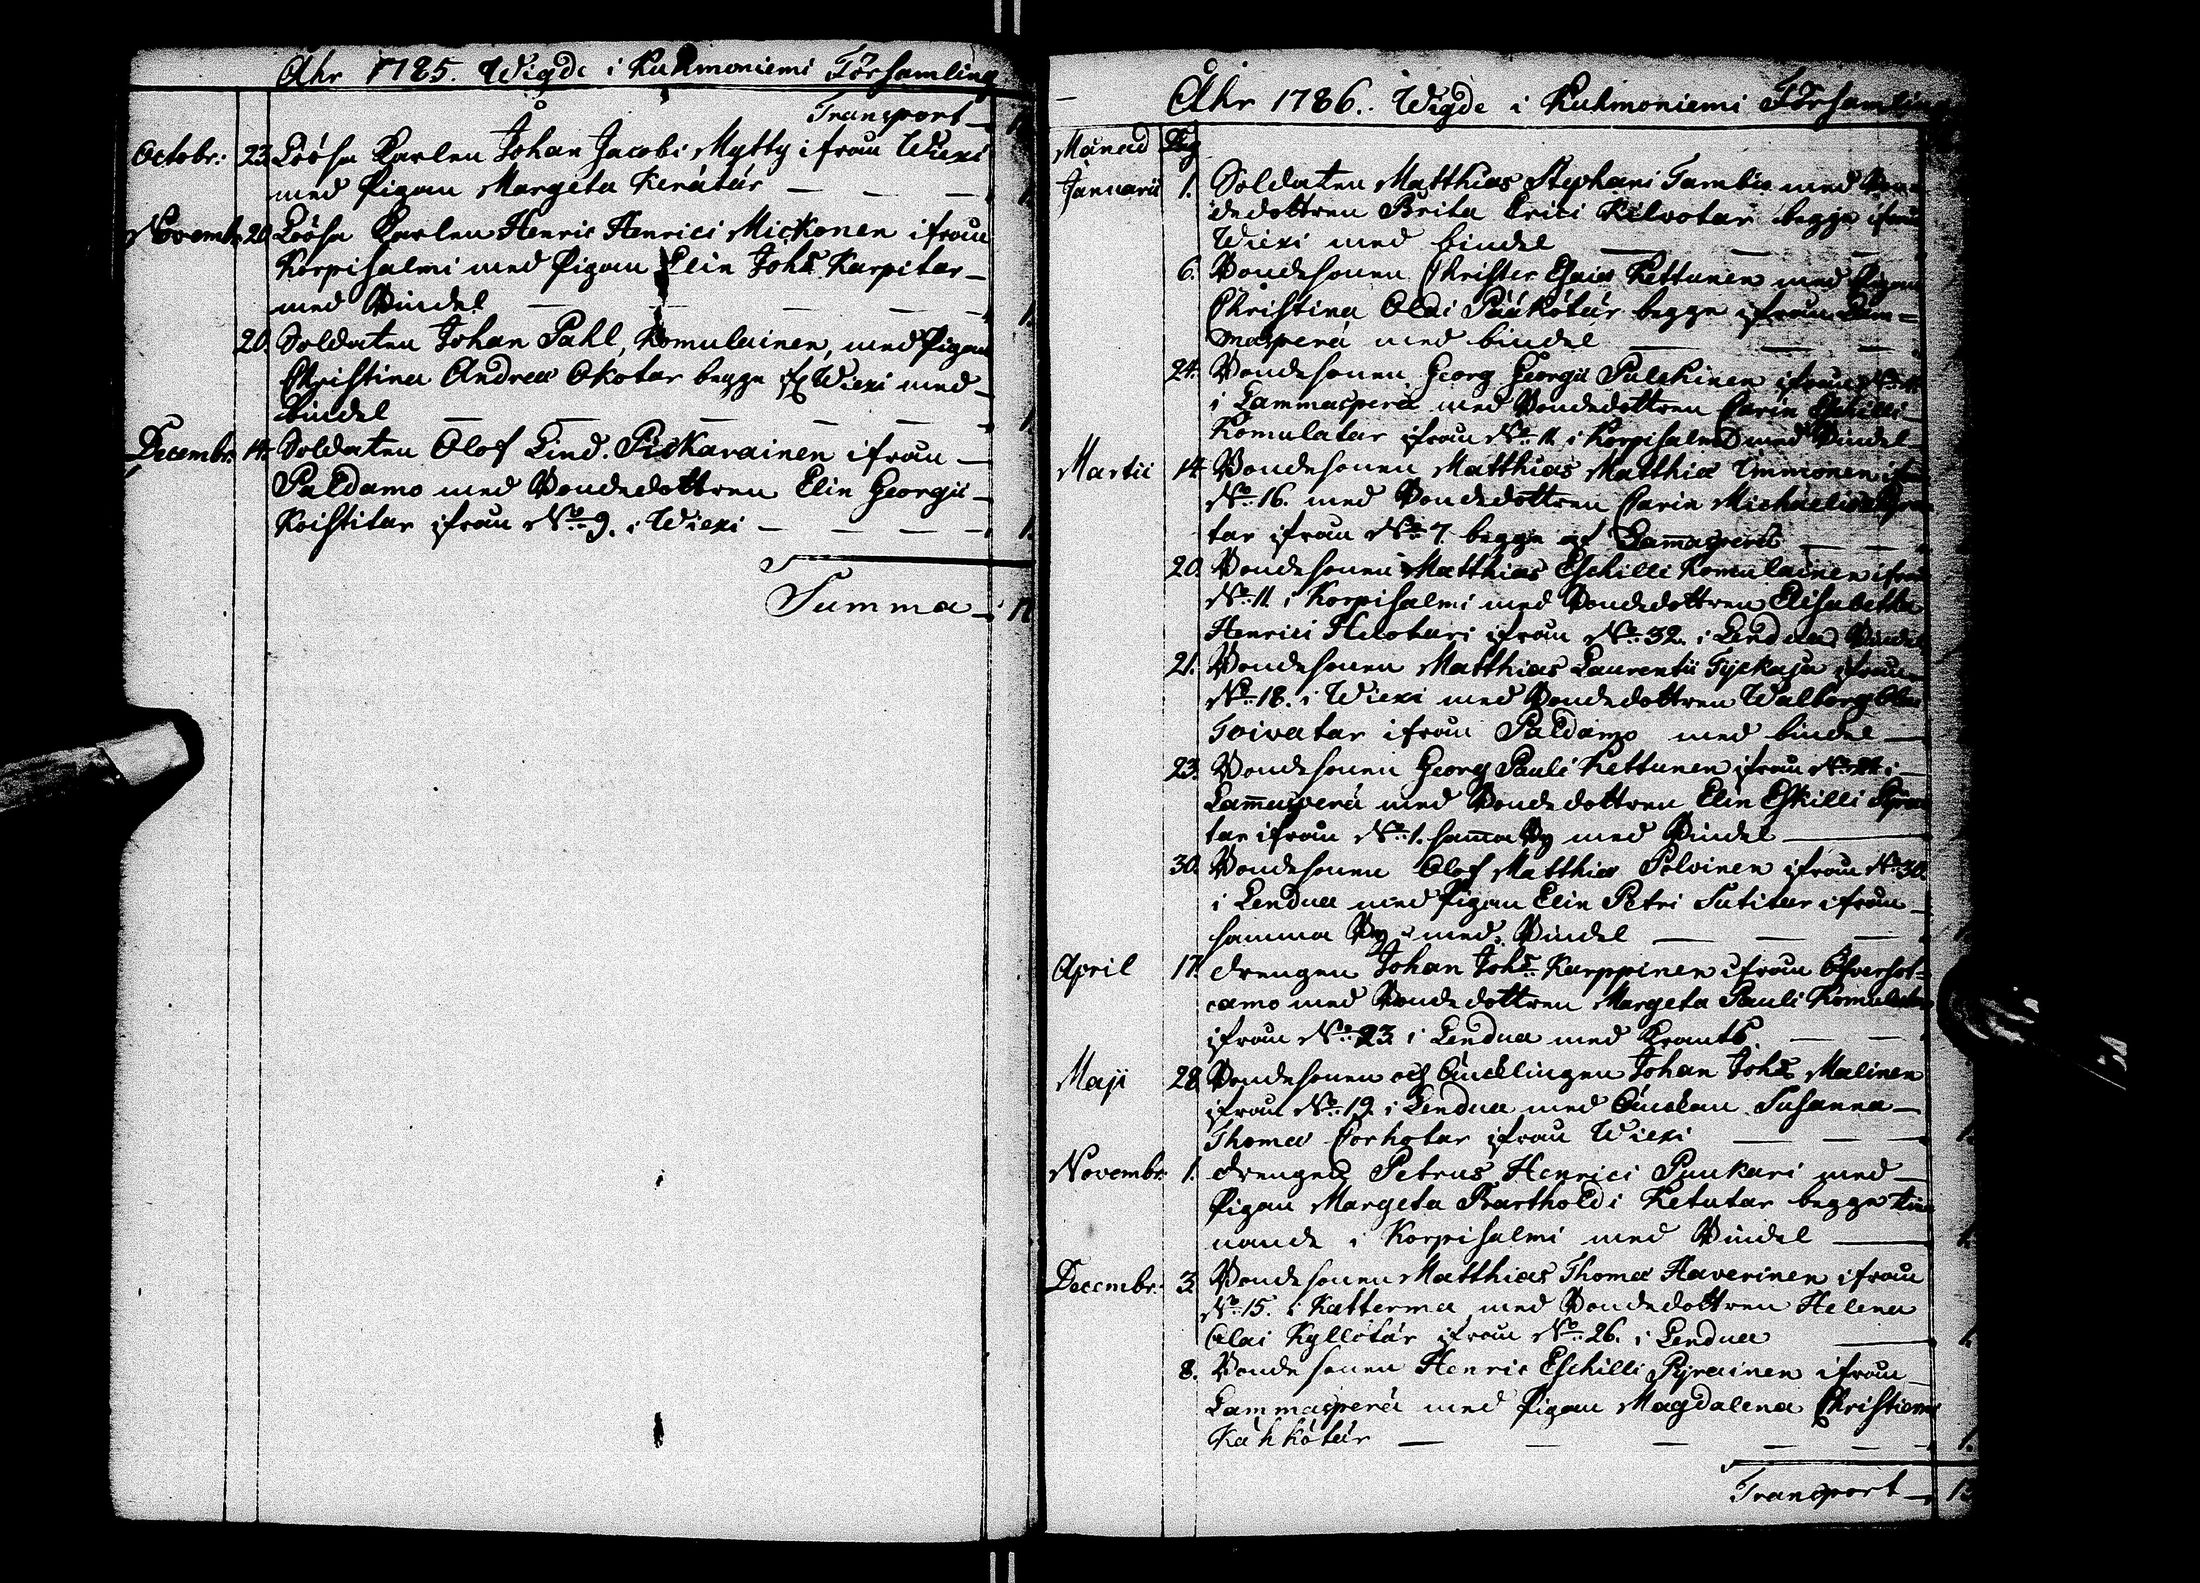 Åhr 1785. Wigde i Kuhmoniemi Församling
Transport
Octobr: 23. Lösa Karlen Johan Jacobi Mytty ifrån Wiexi
med Pigan Margeta Kerätär
Novembr. 20. Lösa Karlen Henric Henrici Mickonen ifrån
Korpisalmi med Pigan Elin Johs Karpitar
med Bindel 1.
20. Soldaten Johan Pahl, Komulainen, med Pigan
Christina Andreæ Okotar begge fr Wiexi med
bindel 1.
Decembr. 14. Soldaten Olof Lind. Pickarainen ifrån
Paldamo med Bondedottren Elin Georgii
Koistitar ifrån No 9. i Wiexi 1.
Summa
Åhr 1786. Wigde i Kuhmoniemi Församling
Månad Dag
Januarii 1. Soldaten Matthias Stephani Tambio med Bon-
dedottren Brita Erici Kilvotar begge ifrån
Wiexi med bindel
6. Bondesonen Christer Esaiæ Kettunen med Pigan
Christina Olai Pääkötär begge ifrån Lam=
masperä med bindel
24. Bondesonen Georg Georgii Pulchinen ifrån
i Lammasperä med Bondedottren Carin Eschilli
Komulatar ifrån No 11 i Korpisalmi med Bindel
Martii 14. Bondesonen Matthias Matthiæ Timmonen ifrån
No 16. med Bondedottren Carin Michaelis
tar ifrån No 7 begge af Lamasperä
20. Bondesonen Matthias Eschilli Komulainen ifrån
No 11 i Korpisalmi med Bondedottren Elisabetha
Henrici Helotari ifrån No 32. i Lendua Bindel
21. Bondesonen Matthias Laurentii Tyckäja ifrån
No 18. i Wiexi med Bondedottren Walborg Olai
Toivatar ifrån Paldamo med bindel
23. Bondesonen Georg Pauli Kettunen ifrån i
Lamasperä med Bondedottren Elin Eskilli
tar ifrån No 1. sama By med Bindel
30. Bondesonen Olof Matthiæ Polvinen ifrån No 30.
i Lendua med Pigan Elin Petri Sutitar ifrån
samma By med Bindel
April 17. drengen Johan Johs Karppinen ifrån Öfversot=
camo med Bondedottren Margeta Pauli Komulatar
ifrån No 23 i Lendua med Krants.
Maji 28. Bondesonen och Enklingen Johan Johs Malinen
ifrån No 19. i Lendua med Enckan Susanna
Thomæ Corhotar ifrån Wiexi 1.
Novembr. 1. drengen Petrus Henrici Puukari med
Pigan Margeta Bartholdi Ketutar begge tie-
nande i Korpisalmi med Bindel 1.
Decembr. 3. Bondesonen Matthias Thomæ Haverinen ifrån
No 15. i Katterma med Bondedottren Helena
Olai Kyllötär ifrån No 26. i Lendua 1.
8. Bondesonen Henric Eschilli Pyrainen ifrån
Lammasperä med Pigan Magdalena Christierni
Kähkötär 1.
Transport